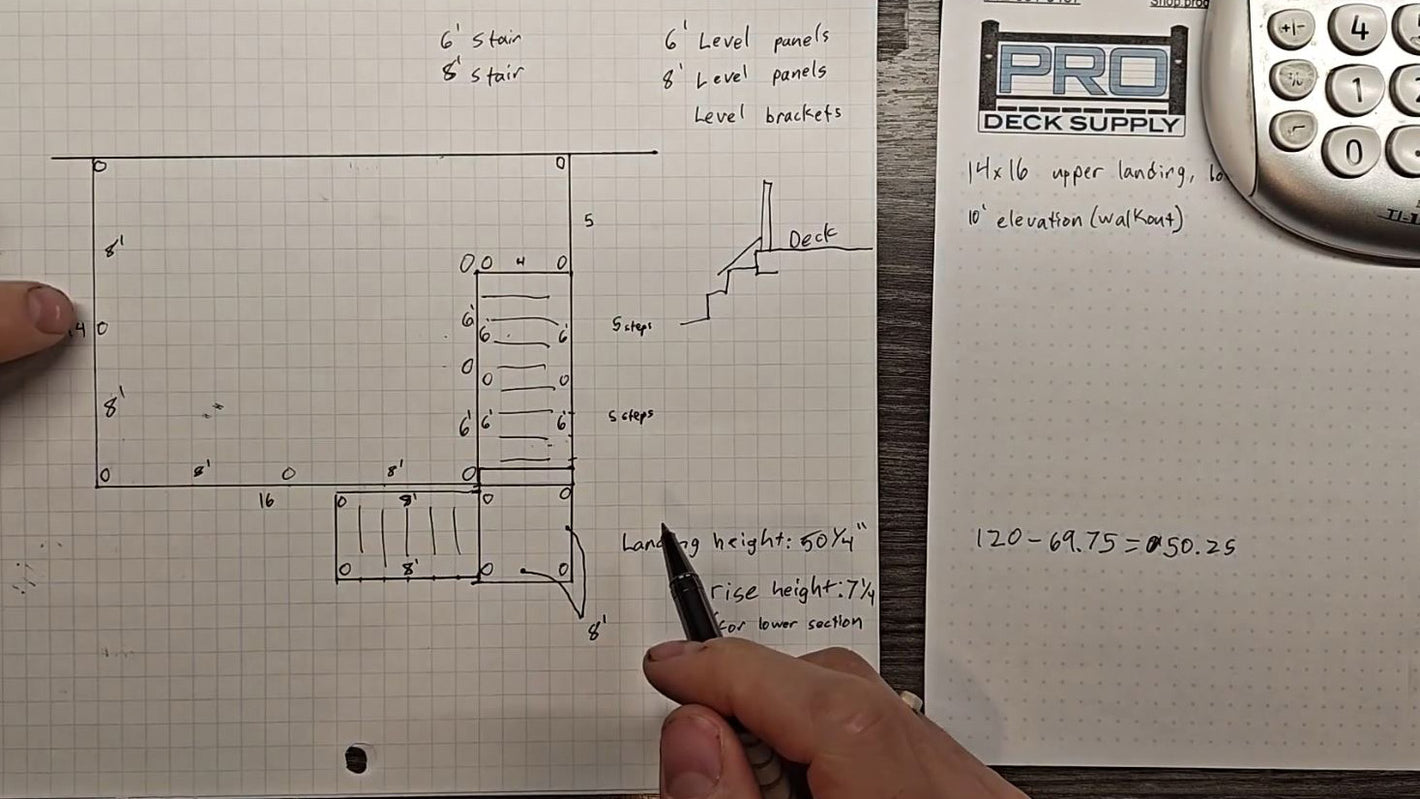 6' Stair
8' Stair
6' Level panels
8' Level panels
Level brackets
8'
14
8'
8'
8'
16
5
4
6'
6'
6'
6'
6'
6'
5 steps
5 steps
8'
8'
8'
Deck
Landing height: 50 1/4"
rise height: 7 1/4
for lower section
PRO
DECK SUPPLY
14x16 upper landing,
10' elevation (walkout)
120 - 69.75 = 50.25
+/-
4
%
1
0